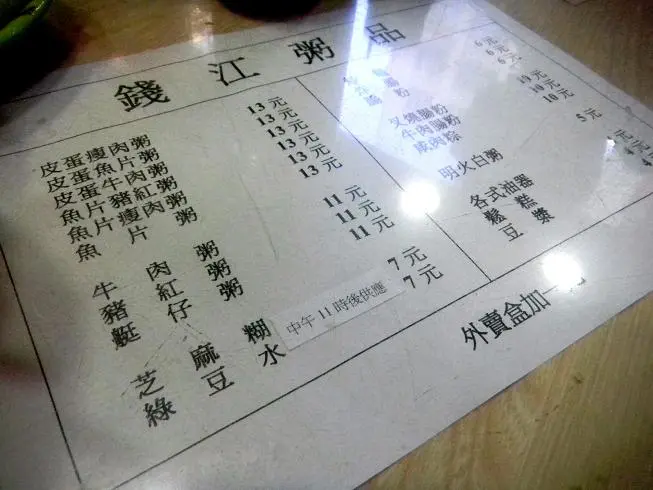 錢江粥品
皮蛋瘦肉粥 13元
皮蛋魚片粥 13元
皮蛋牛肉粥 13元
魚片豬紅粥 13元
魚片瘦肉粥 13元
魚片粥
牛肉粥 11元
豬紅粥 11元
艇仔粥 11元
芝麻糊 7元
綠豆水 7元
中午11時後供應
腸粉
6元
6元
6元
叉燒腸粉 10元
牛肉腸粉 10元
咸肉粽 10元
明火白粥 5元
各式油器
鬆糕
豆漿
外賣盒加一